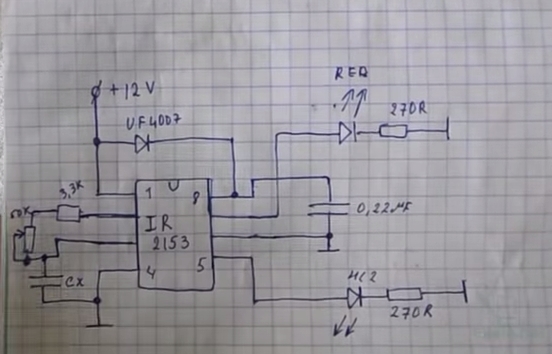 +12V
RED
270R
UF4007
3,3K
50K
1
8
IR
2153
0,22мF
4
5
Cx
270R